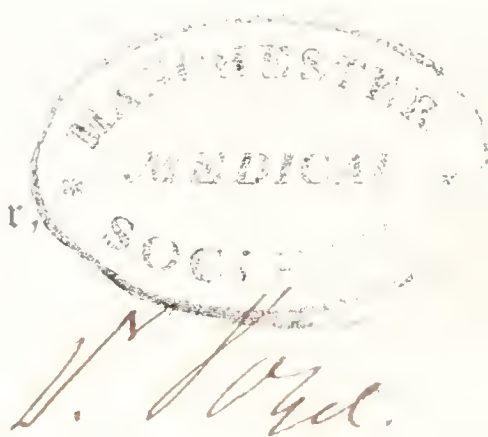 MANCHESTER
* MEDICAL *
SOCIETY
r,
V.